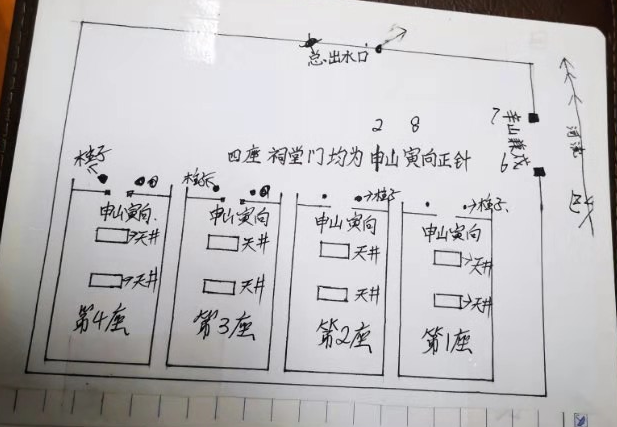 总出水口
2 8
四座祠堂门均为申山寅向正针
7
辛山兼戌
6
河流
桂子
桂子
桂子
桂子
申山寅向
申山寅向
申山寅向
申山寅向
天井
天井
天井
天井
天井
天井
天井
天井
第4座
第3座
第2座
第1座